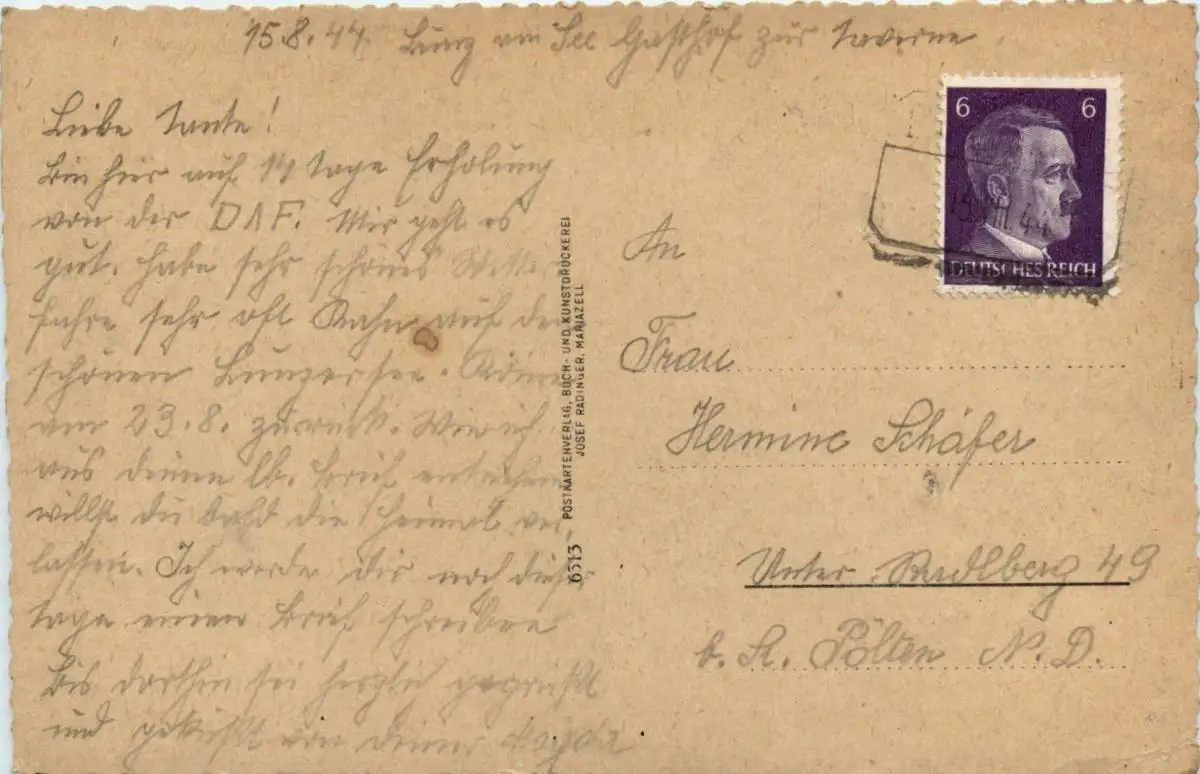 15.8.44. Lunz am See Gasthof zur Taverne
Liebe Tante!
Bin hier auf 14 tage Erholung
von der DAF. Mir geht es
gut. habe sehr schönes Wetter
fahre sehr oft Kahn auf den
schönen Lunzersee. Komme
am 23.8. zurück. Wie ich
aus deinem lb. Brief entnehme
willst du bald die Heimat ver-
lassen. Ich werde dir noch diese
tage einen Brief schreiben
Bis dorthin sei herzlich gegrüßt
und geküßt von deiner
POSTKARTENVERLAG, BUCH- UND KUNSTDRUCKEREI
JOSEF RADINGER, MARIAZELL
6513
6 6
DEUTSCHES REICH
44
An
Frau
Hermine Schäfer
Unter Radlberg 49
b. St. Pölten N. D.